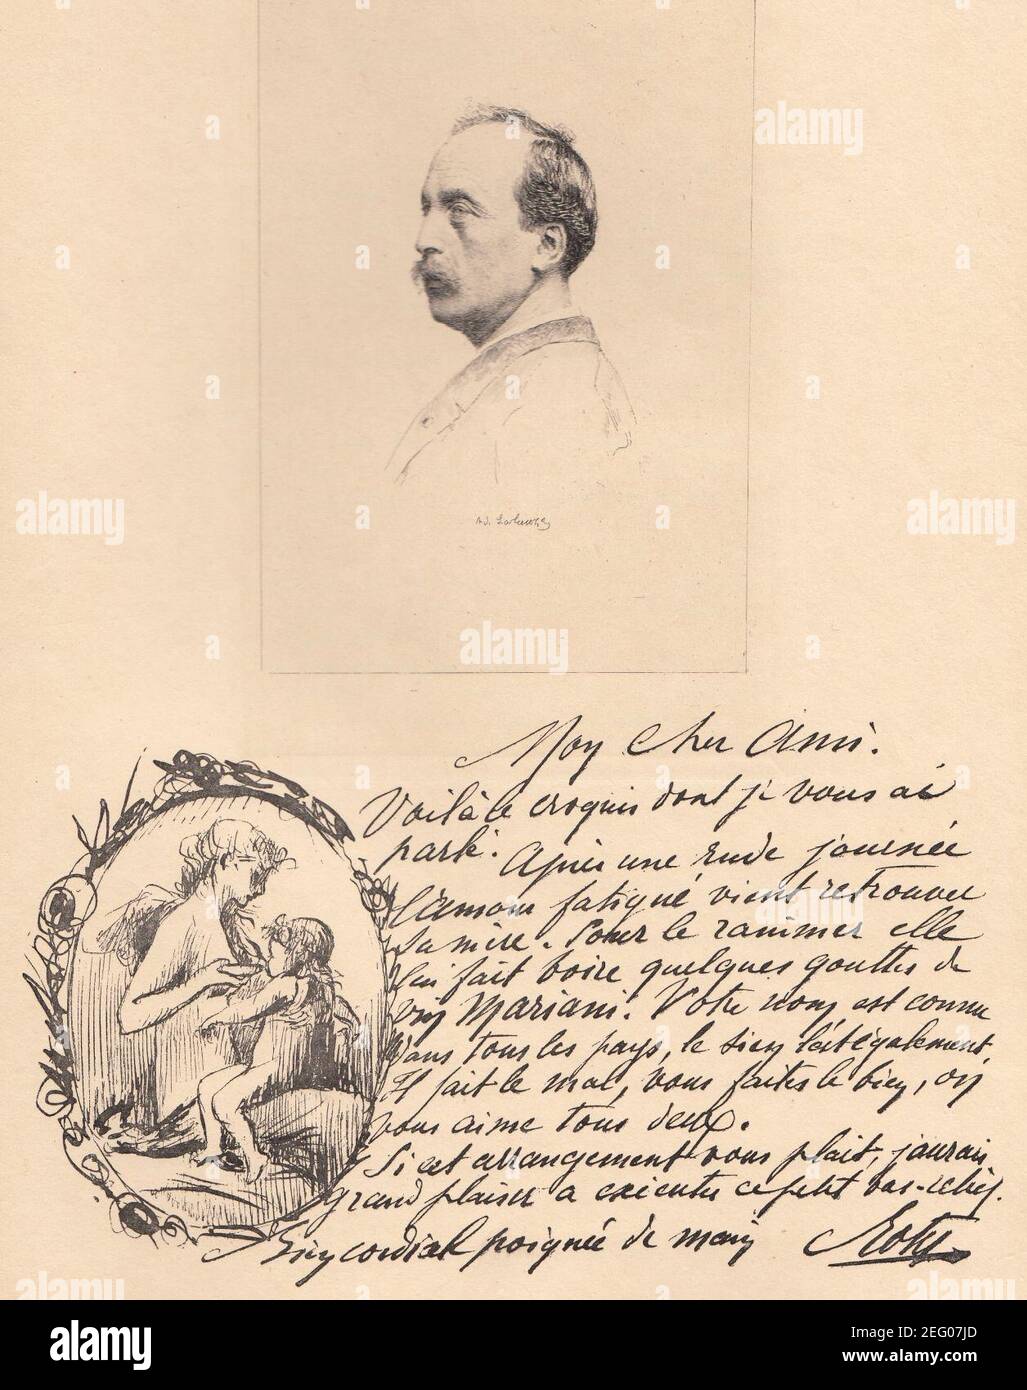 Mon cher Ami.
Voilà le croquis dont je vous ai
parlé. Après une rude journée
l'Amour fatigué vient retrouver
sa mère. Pour le ranimer elle
lui fait boire quelques gouttes de
vin Mariani. Votre nom est connu
dans tous les pays, le sien l'est également,
Il fait le mal, vous faites le bien, on
vous aime tous deux.
Si cet arrangement vous plait, j'aurais
grand plaisir a executer ce petit bas-relief.
Bien cordiale poignée de main Roty
alamy
a
Image ID: 2EG07JD
www.alamy.com